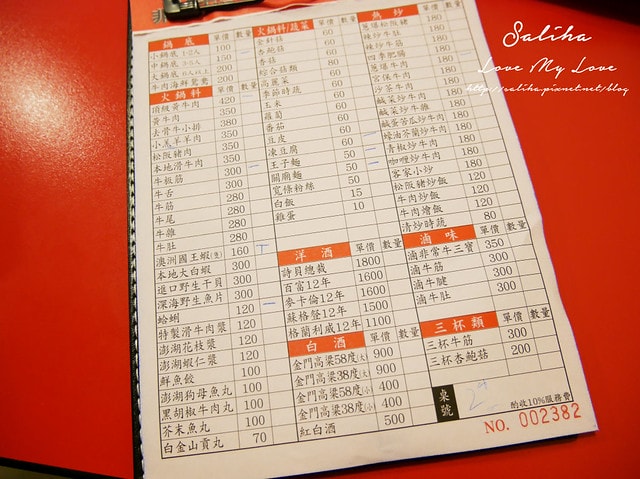 鍋底 單價 數量
小鍋底 1-2人 100
大鍋底 3-5人 150
火鍋底 6人以上 200
牛肉海鮮鴛鴦 200
火鍋料 單價 數量
頂級黃牛肉 420
黃牛肉 350
去骨牛小排 380
小羔羊羊肉 350
松阪豬肉 350
本地滑牛肉 350
牛板筋 300
牛舌 300
牛筋 280
牛尾 280
牛雜 280
牛肚 280
澳洲國王蝦(隻) 160
本地大白蝦 300
進口野生干貝 300
深海野生魚片 300
蛤蜊 120
特製滑牛肉漿 120
澎湖花枝漿 120
澎湖蝦仁漿 120
鮮魚餃 100
澎湖狗母魚丸 100
黑胡椒牛肉丸 100
芥末魚丸 100
白金山貢丸 70
火鍋料/蔬菜 單價 數量
金針菇 60
杏鮑菇 60
香菇 60
綜合菇類 80
高麗菜 60
季節時蔬 60
玉米 60
蘿蔔 60
番茄 60
豆皮 60
凍豆腐 50
王子麵 50
關廟麵 50
寬條粉絲 50
白飯 15
雞蛋 10
洋酒 單價 數量
詩貝總裁 1800
百富12年 1600
麥卡倫12年 1600
蘇格登12年 1500
格蘭利威12年 1100
白酒 單價 數量
金門高粱58度(大) 900
金門高粱38度(大) 900
金門高粱58度(小) 400
金門高粱38度(小) 400
紅白酒 500
熱炒 單價 數量
蔥爆松阪豬 180
辣炒牛肚 180
辣炒牛筋 180
四季肥腸 180
蔥爆牛肉 180
宮保牛肉 180
沙茶牛肉 180
鹹菜炒牛肉 180
鹹菜炒牛雜 180
鹹蛋苦瓜炒牛肉 180
蠔油芥蘭炒牛肉 180
青椒炒牛肉 180
咖哩炒牛肉 180
客家小炒 180
松阪豬炒飯 120
牛肉炒飯 120
牛肉燴飯 120
清炒時蔬 80
滷味 單價 數量
滷非常牛三寶 350
滷牛筋 300
滷牛腱 300
滷牛肚 300
三杯類 單價 數量
三杯牛筋 300
三杯杏鮑菇 200
桌號
酌收10%服務費
NO. 002382
Saliha
Love My Love
http://saliha.pixnet.net/blog